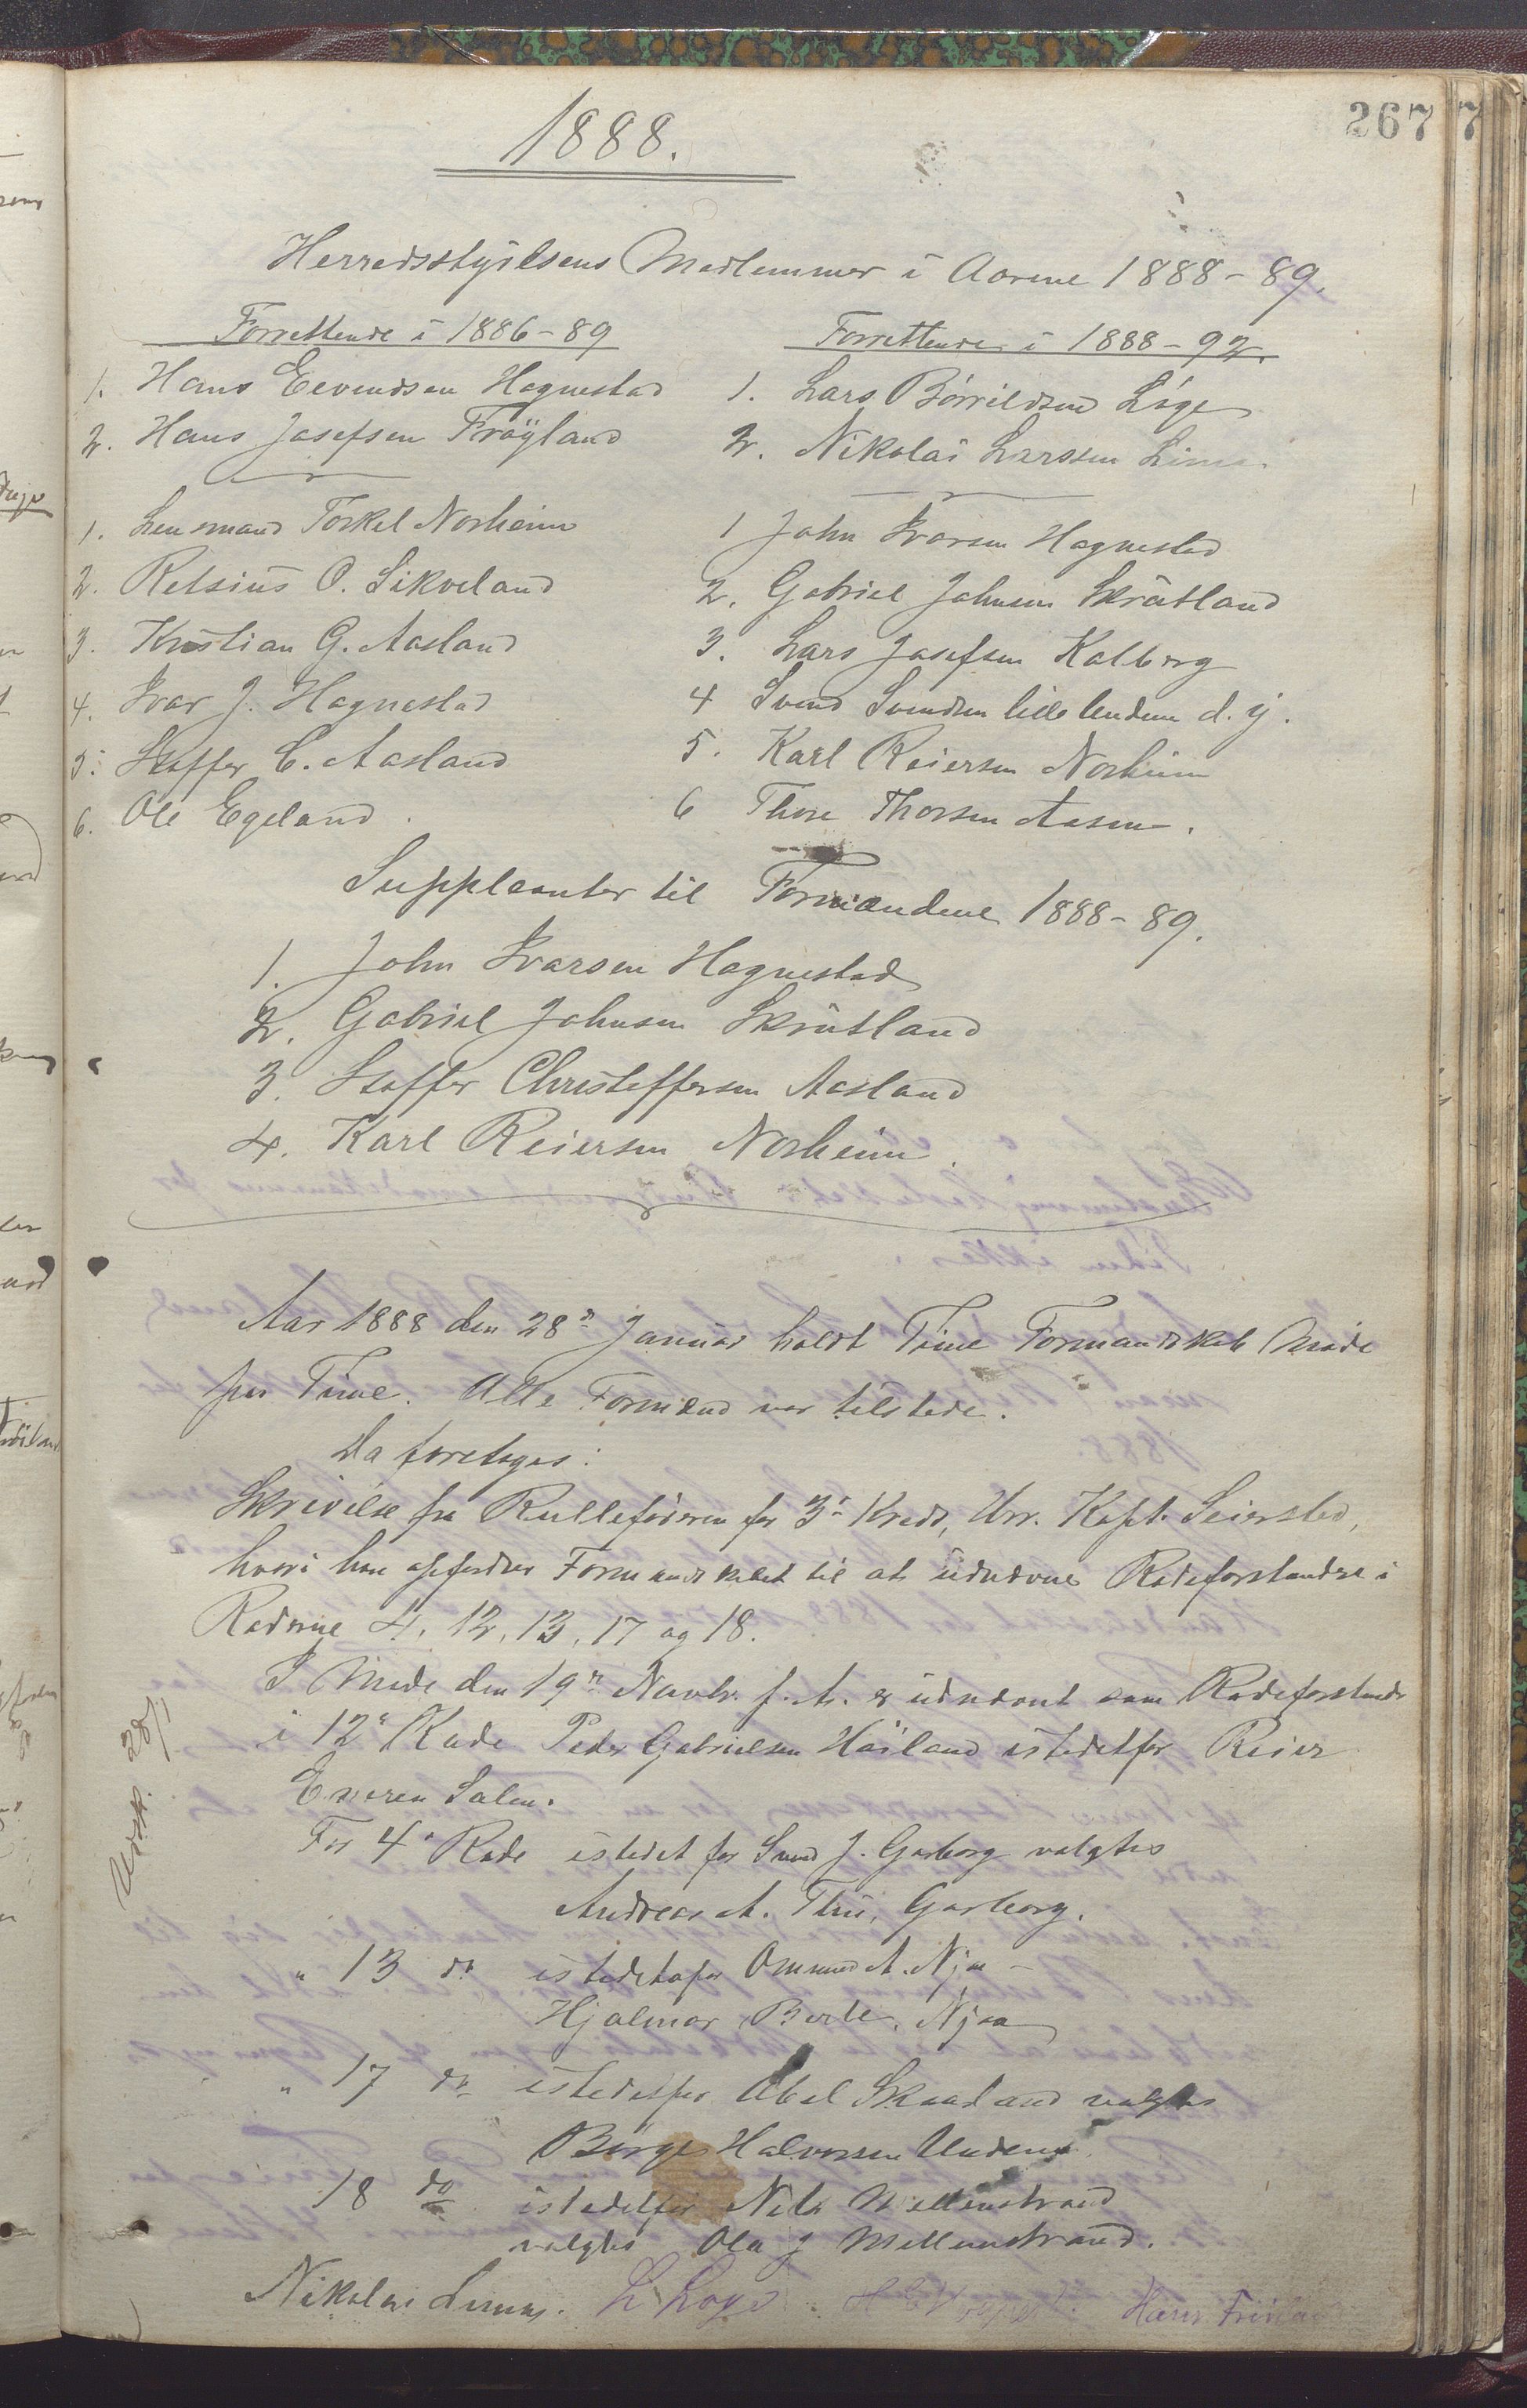 267
1888.
Herredsstyrelsens Medlemmer i Aarene 1888-89.
Forrettende i 1886-89
1. Hans Eevendsen Hognestad
2. Hans Josefsen Frøyland
1. Lensmand Torkel Norheim
2. Retsius O. Sikveland
3. Kristian G. Aasland
4. Ivar J. Hognestad
5. Staffer C. Aasland
6. Ole Egeland.
Forrettende i 1888-92.
1. Lars Börrildsen Löge
2. Nikolai Larssen Lima.
1 John Ivarsen Hognestad
2. Gabriel Johnsen Skrätland
3. Lars Josefsen Kalberg
4 Svend Svendsen lille Undem d. y.
5. Karl Reiersen Norheim
6 Thore Thorsen Aasen.
Suppleanter til Formændene 1888-89.
1. John Ivarsen Hognestad
2. Gabriel Johnsen Skrätland
3. Staffer Christoffersen Aasland
4. Karl Reiersen Norheim.
Aar 1888 den 28n Januar holdt Time Formandskab Møde
paa Time. Alle Formænd var tilstede.
Da foretoges:
Skrivelse fra Rulleføreren for 3n Kreds, Hrr. Kapt. Seiersted,
hvori han opfordrer Formandskabet til at udnævne Rodeforstandre i
Roderne 4, 12, 13, 17 og 18.
I Møde den 19n Novbr. f. A. er udnævnt som Rodeforstander
i 12n Rode Peder Gabrielsen Höiland istedetfor Reier
Salen.
For 4n Rode istedet for Svend J. Garborg valgtes
Andreas A. Thu, Garborg.
" 13 do istedetfor Ommund A. Njaa -
Hjalmar Berle, Njaa
" 17 do istedetfor Abel Skaaland valgtes
Börge Halvorsen Undem.
18 do istedetfor Nils Mellemstrand
valgtes Ola J Mellemstrand.
Udsk. 28/1
Nikolai Lima. L Loge Hans Fröiland